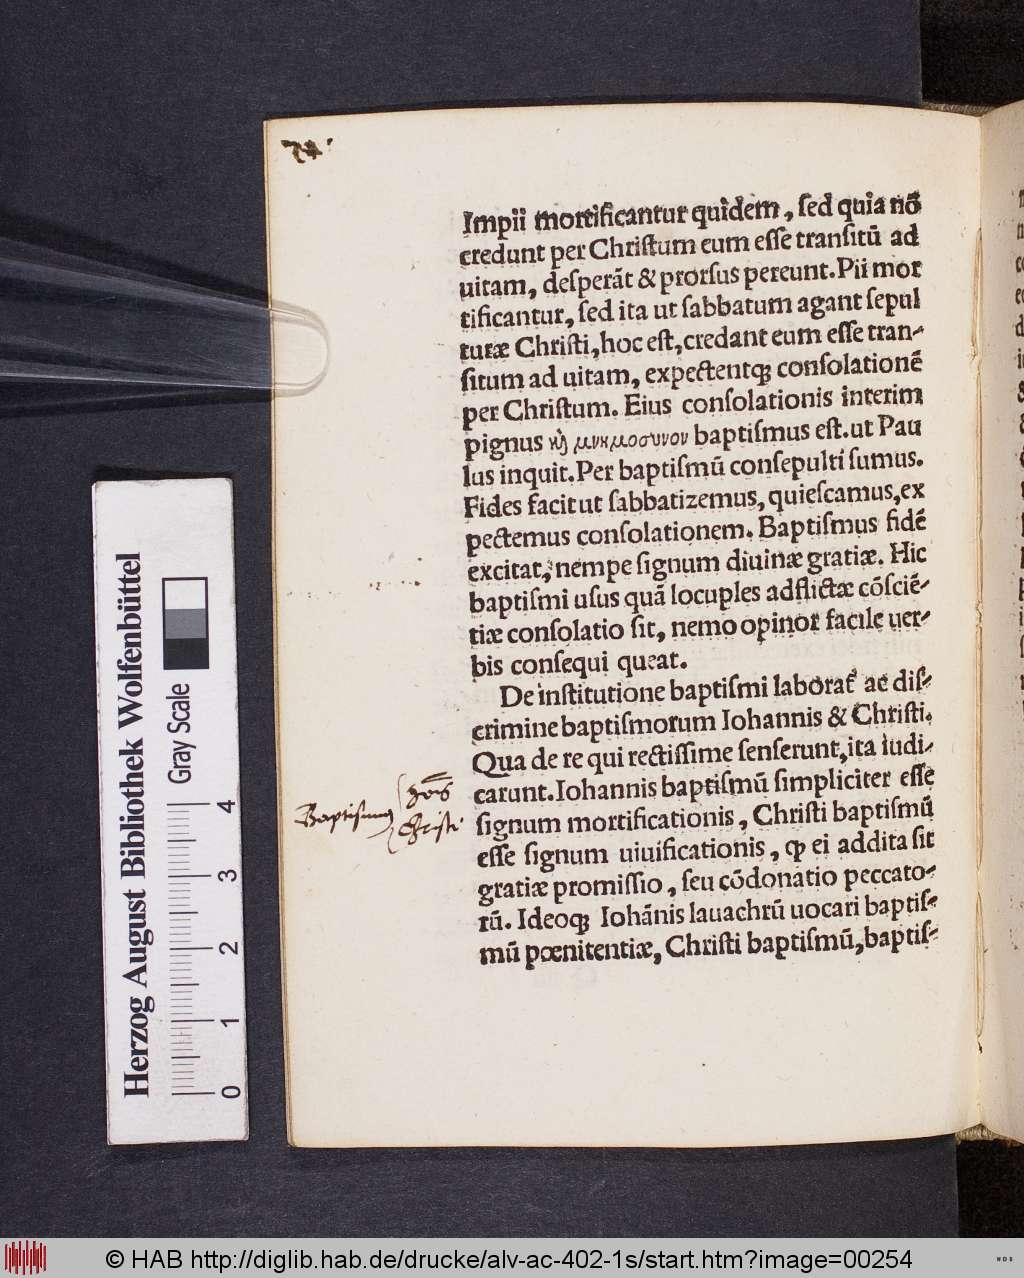 74
Impii mortificantur quidem, ſed quia nō
credunt per Chriſtum eum eſſe tranſitū ad
uitam, deſperāt & prorſus pereunt. Pii mor
tificantur, ſed ita ut ſabbatum agant ſepul
turæ Chriſti, hoc eſt, credant eum eſſe tran-
ſitum ad uitam, expectentq; conſolationē
per Chriſtum. Eius conſolationis interim
pignus κὶ μνημοσυνον baptiſmus eſt. ut Pau
lus inquit. Per baptiſmū conſepulti ſumus.
Fides facit ut ſabbatizemus, quieſcamus, ex
pectemus conſolationem. Baptiſmus fidē
excitat, nempe ſignum diuinæ gratiæ. Hic
baptiſmi uſus quā locuples adflictæ cōſciē-
tiæ conſolatio ſit, nemo opinor facile uer-
bis conſequi queat.
De inſtitutione baptiſmi laborat᷑ ac diſ-
crimine baptiſmorum Iohannis & Chriſti.
Qua de re qui rectiſſime ſenſerunt, ita iudi-
carunt. Iohannis baptiſmū ſimpliciter eſſe
ſignum mortificationis, Chriſti baptiſmū
eſſe ſignum uiuificationis, ꝙ ei addita ſit
gratiæ promiſſio, ſeu cōdonatio peccato-
rū. Ideoq; Iohānis lauachrū uocari baptiſ-
mū pœnitentiæ, Chriſti baptiſmū, baptiſ-
Baptismus
Johīs
Christi
Herzog August Bibliothek Wolfenbüttel
Gray Scale
0 1 2 3 4
© HAB http://diglib.hab.de/drucke/alv-ac-402-1s/start.htm?image=00254